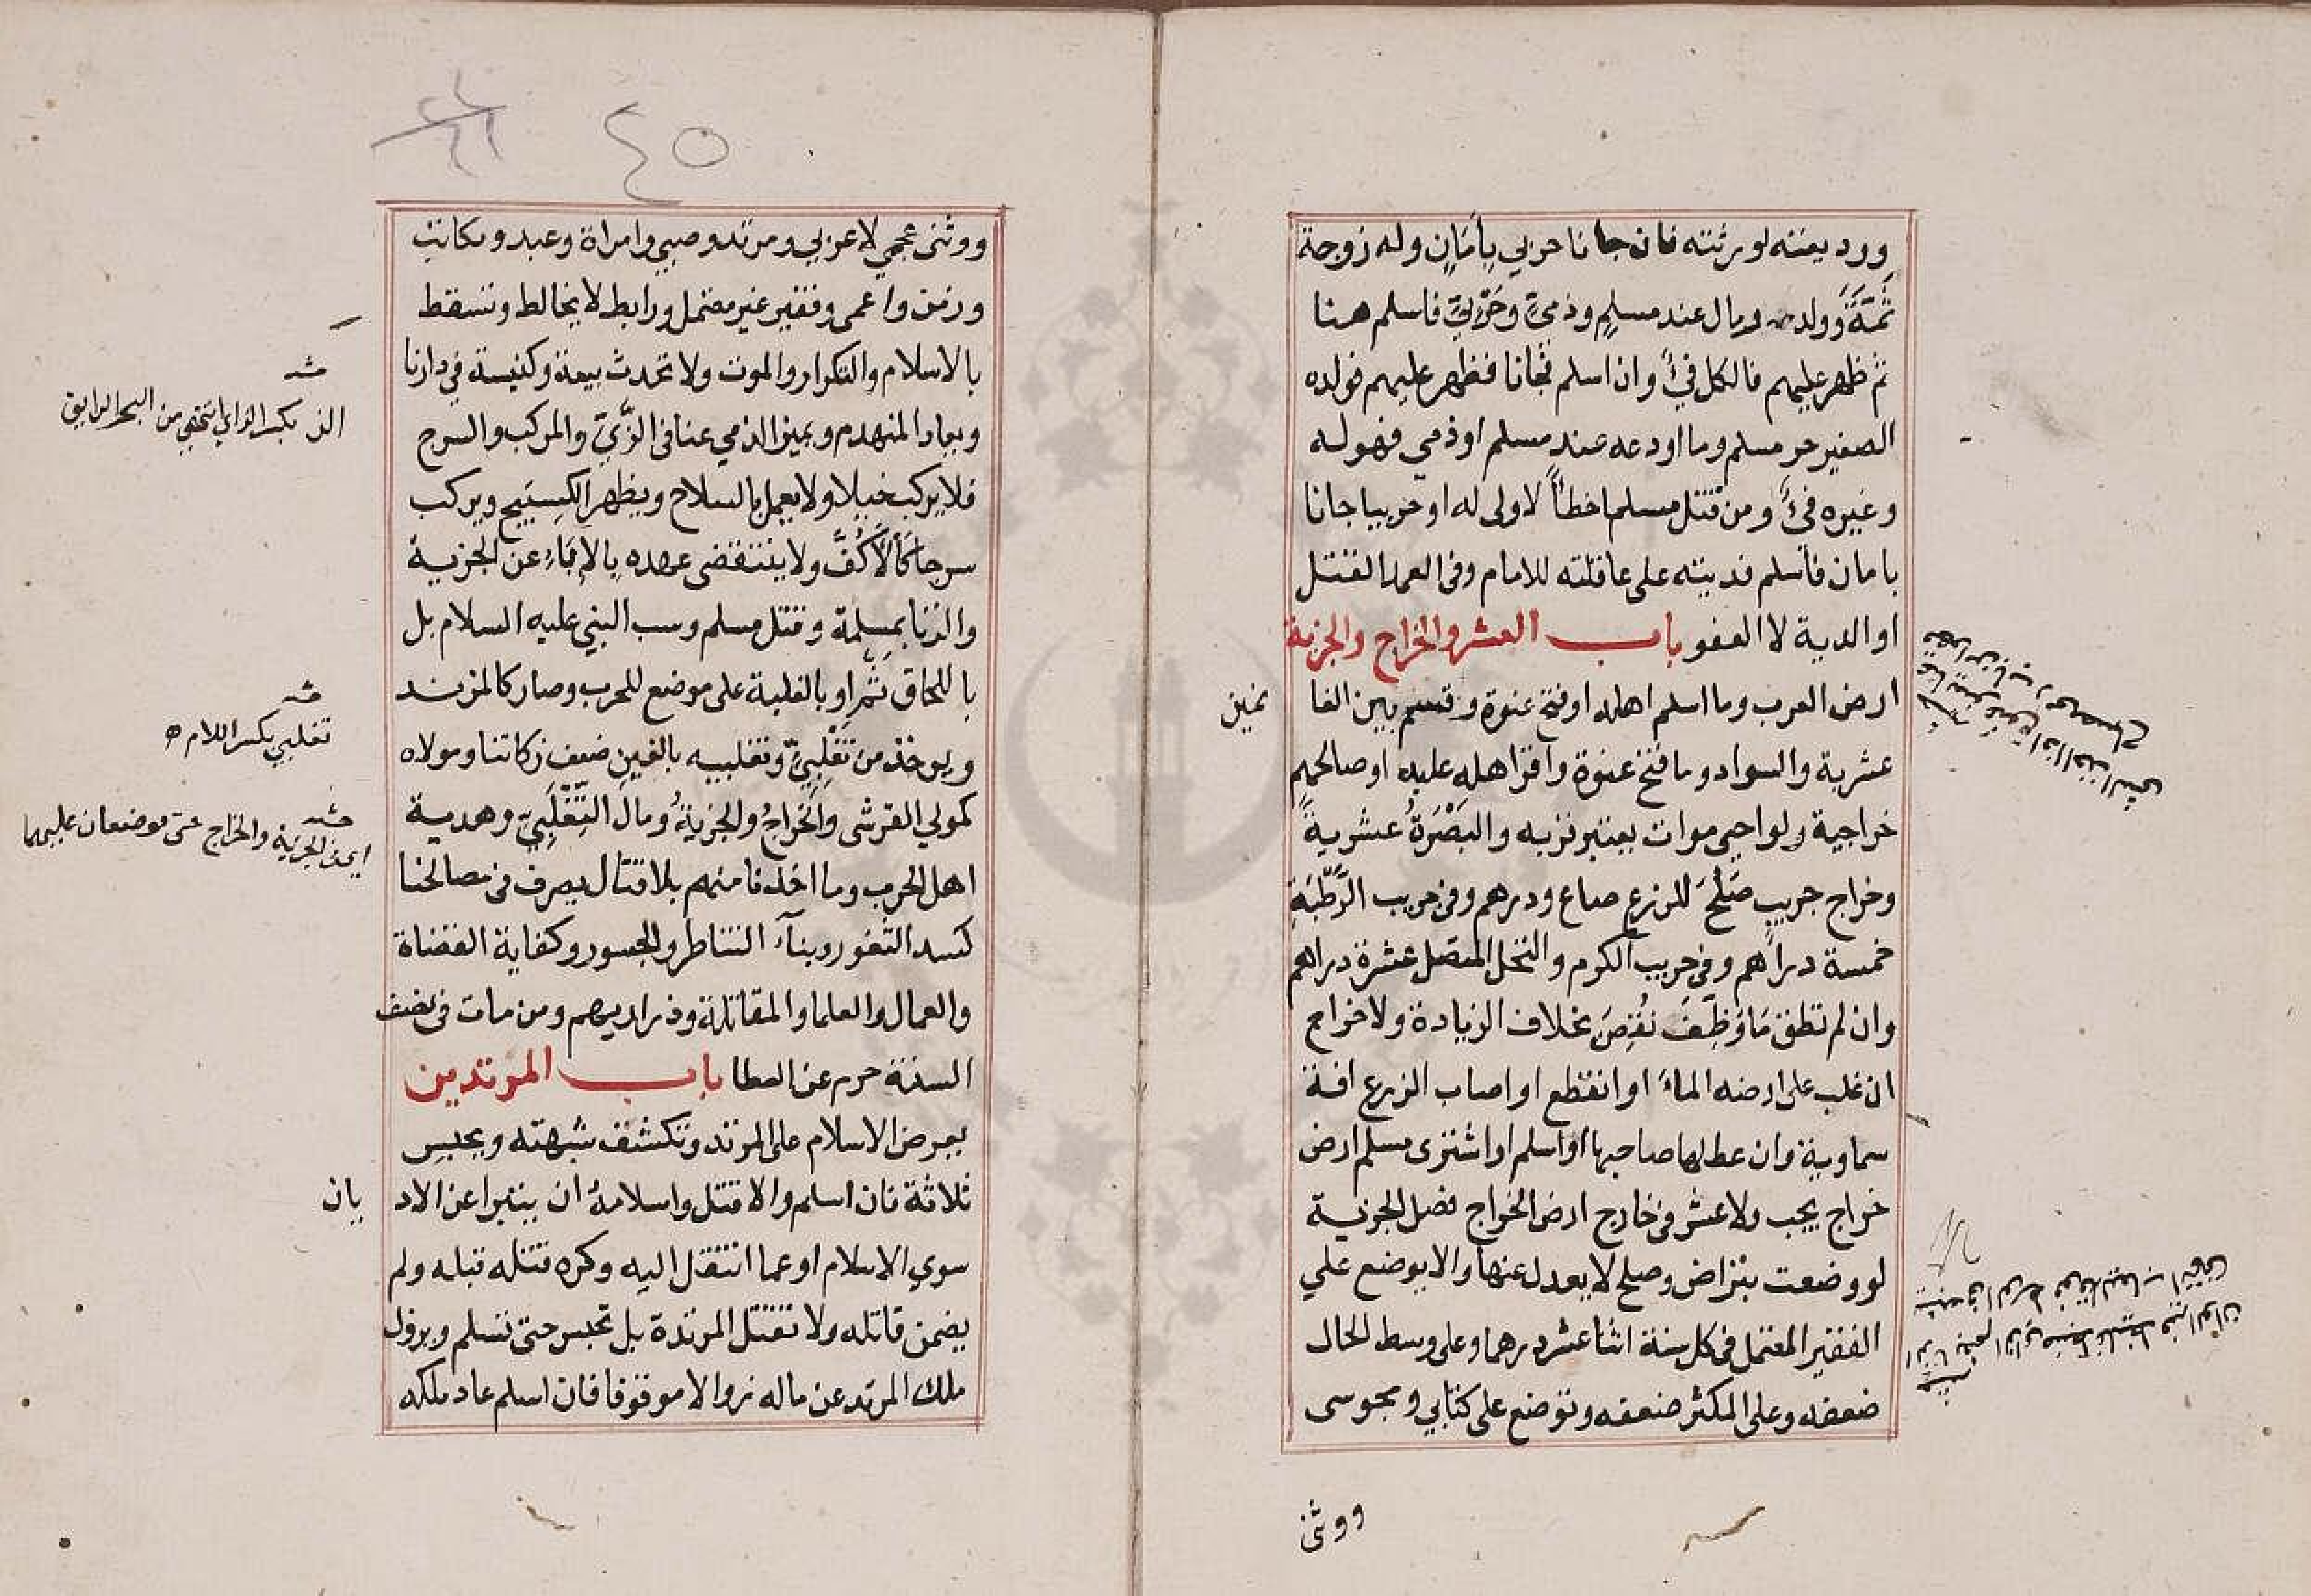 ووديعته لورثته فان جانا حربي بأمان وله زوجة
ثمة وولد ومال عند مسلم وذمي وحربي فاسلم هنا
ثم ظهر عليهم فالكل فيء وان اسلم ثم فجانا فظهر عليهم فولده
الصغير حر مسلم وما اودعه عند مسلم اوذمي فهو له
وغيره فيء ومن قتل مسلما خطأ لاولى له او حربيا جانا
بامان فأسلم فديته على عاقلته للامام وفى العمد القتل
او الدية لا العفو باب العشر والخراج والجزية
ارض العرب وما اسلم اهله اوفتح عنوة وقسم بين الغا
نمين
عشرية والسواد وما فتح عنوة واقر اهله عليه اوصالحهم
خراجية ولو احيى موات يعتبر قربه والبصرة عشرية
وخراج جريب صلح للزرع صاع ودرهم وفى جريب الرطبة
خمسة دراهم وفى جريب الكرم والنخل المتصل عشرة دراهم
وان لم تطق ما وظف نقص بخلاف الزيادة ولا خراج
ان غلب على ارضه الماء او انقطع او اصاب الزرع افة
سماوية وان عطلها صاحبها او اسلم او اشترى مسلم ارض
خراج يجب ولا عشر فى خارج ارض الخراج فصل الجزية
لو وضعت بتراض وصلح لا يعدل عنها والا يوضع علي
الفقير المعتمل فى كل سنة اثنا عشر درهما وعلى وسط الحال
ضعفه وعلى المكثر ضعفه وتوضع على كتابي ومجوسى
ووثنى
٤٥
ووثنى عجمي لا عربي ومرتد وصبي وامراة وعبد ومكاتب
وزمن واعمى وفقير غير معتمل وراهب لا يخالط وتسقط
بالاسلام والتكرار والموت ولا تحدث بيعة وكنيسة في دارنا
ويعاد المنهدم ويميز الذمي عنا فى الزي والمركب والسرج
فلا يركب خيلا ولا يعمل بالسلاح ويظهر الكستيج ويركب
سرجا كالأكف ولا ينتقض عهده بالإباء عن الجزية
والزنا بمسلمة وقتل مسلم وسب النبي عليه السلام بل
باللحاق ثم او بالغلبة على موضع للحرب وصار كالمرتد
ويوخذ من تغلبي وتغلبيه بالغين ضعف زكاتنا ومولاه
كمولي القرشى والخراج والجزية ومال التغلبي وهدية
اهل الحرب وما اخذنا منهم بلا قتال يصرف فى مصالحنا
كسد الثغور وبنآء القناطر والجسور وكفاية القضاة
والعمال والعلما والمقاتلة وذراريهم ومن مات فى نصف
السنة حرم عن العطا باب المرتدين
يعرض الاسلام على المرتد وتكشف شبهته ويحبس
ثلاثة فان اسلم والا قتل واسلامه ان يتبرا عن الاد
يان
سوي الاسلام او عما انتقل اليه وكره قتله قبله ولم
يضمن قاتله ولا تقتل المرتدة بل تحبس حتى تسلم ويزول
ملك المرتد عن ماله زوالا موقوفا فان اسلم عاد ملكه
تغلبي بكسر اللام